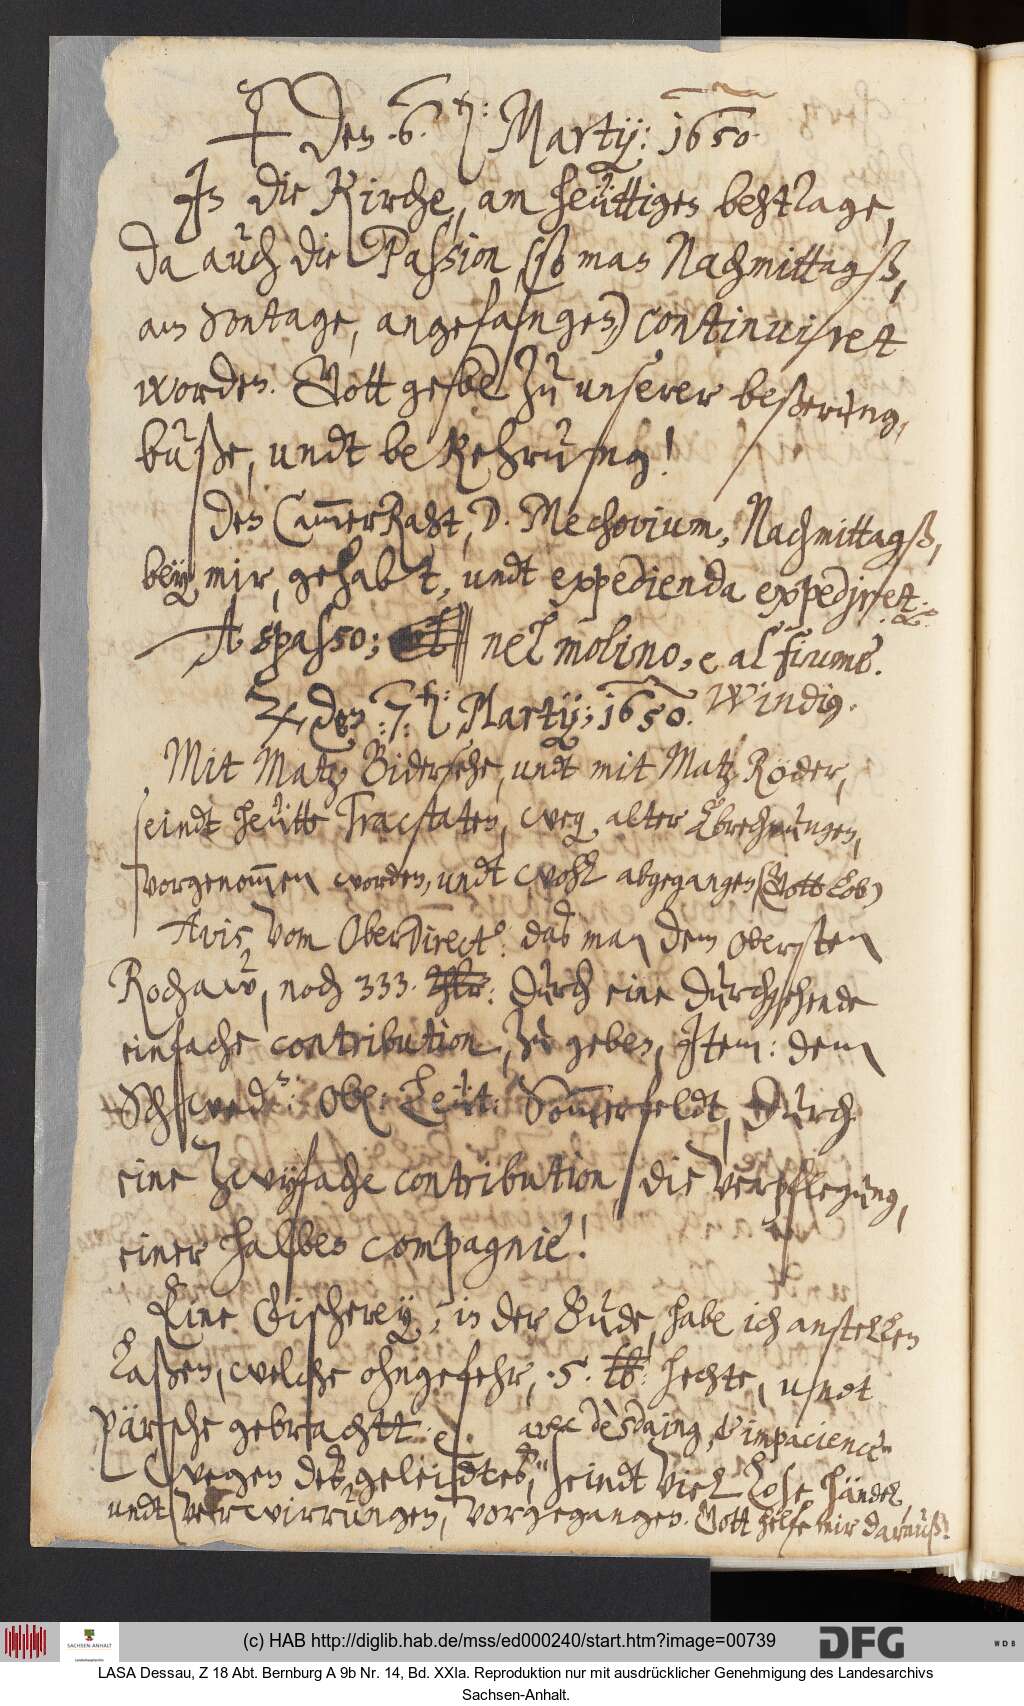 ☿ Den .6. t: Martzij: 1650.
In die Kirche, am heüttigen behttage,
da auch die Passion, (so man Nachmittagß,
am Sontage, angefangen) continuiret
worden. Gott gebe zu unserer beßerung,
buße, undt bekehrung!
Den CammerRaht, D. Mechovium, Nachmittagß,
bey mir, gehabt, undt expedienda expediret.
A spasso; nel molino, e al fiume.
♃ den: 7. t: Martzij; 1650. Windig.
Mit Matz Bidersehe, undt mit Matz Röder,
seindt heütte Tractaten, weg alter Abrechnungen,
vorgenommen worden, undt wohl abgegangen (Gott lob)
Avis vom OberDirector: daß man dem Obersten
Rochaw, noch 333 Thlr: durch eine durchgehende
einfache contribution, zu geben, Item: dem
Schwed: Ob: Leüt: Sommerfeldt, durch
eine zwyfache contribution, die verpflegung,
einer halben compagnie!
Eine Fischerey, in der Fuhde, habe ich anstellen
laßen, welche ohngefehr, .5. lb: hechte, undt
pärsche gebracht. avec desdaing, & impacience
Wegen deß geleidteß, seindt viel lose händel,
undt verwirrungen, vorgegangen. Gott helfe mir darauß!
(c) HAB http://diglib.hab.de/mss/ed000240/start.htm?image=00739
SACHSEN-ANHALT
DFG
WDB
LASA Dessau, Z 18 Abt. Bernburg A 9b Nr. 14, Bd. XXIa. Reproduktion nur mit ausdrücklicher Genehmigung des Landesarchivs
Sachsen-Anhalt.